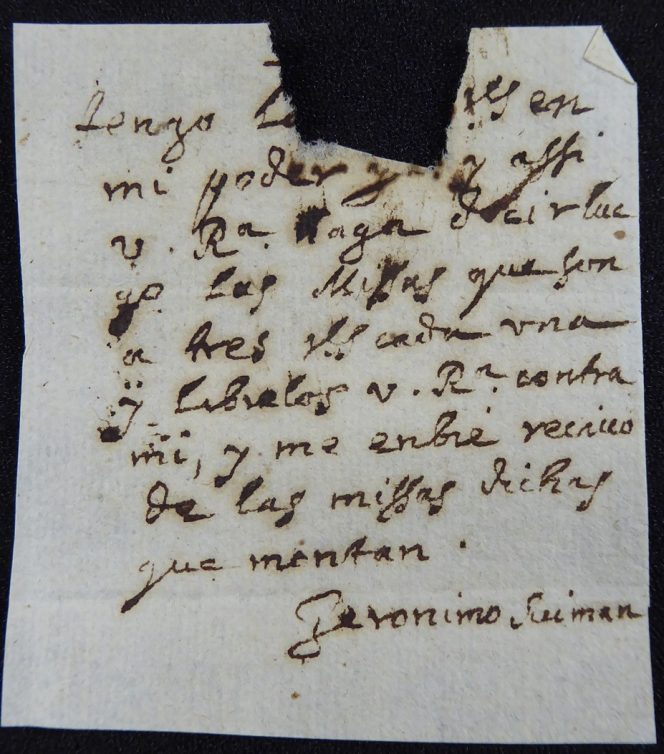 tengo en
mi poder y assi
v. Rª. haga decir lue
go las Missas que son
a tres rrs cada una
y librelos v. Rª. contra
mi, y me enbie reciuo
de las missas dichas
que montan.
Geronimo